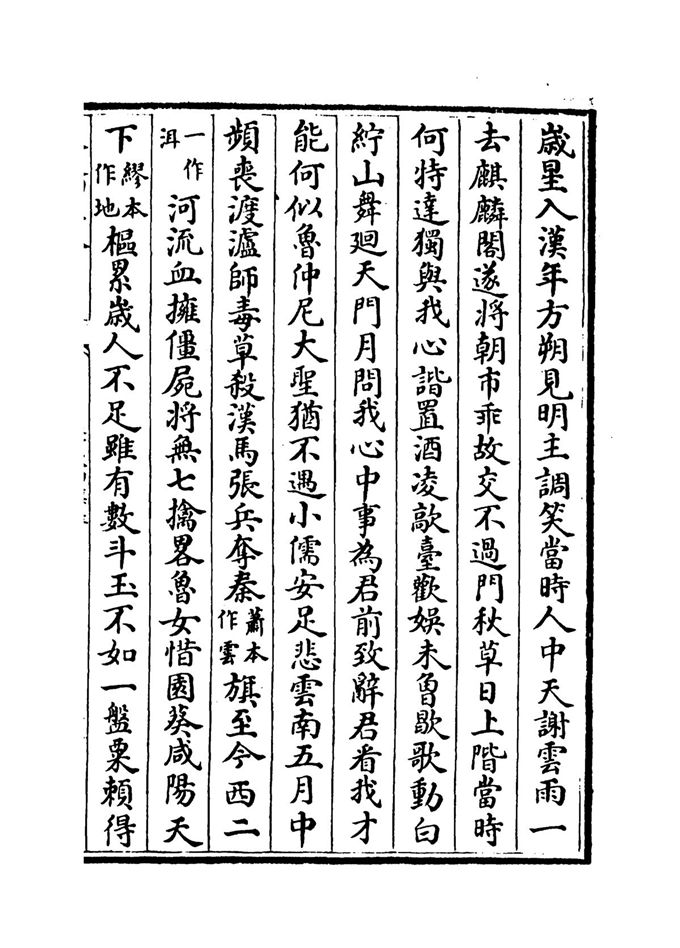 歲星入漢年方朔見明主調笑當時人中天謝雲雨一
去麒麟閣遂將朝市乖故交不過門秋草日上階當時
何特達獨與我心諧置酒凌歊臺歡娛未曾歇歌動白
紵山舞廻天門月問我心中事為君前致辭君看我才
能何似魯仲尼大聖猶不遇小儒安足悲雲南五月中
頻喪渡瀘師毒草殺漢馬張兵奪秦蕭本作雲旗至今西二
一作洱河流血擁僵屍將無七擒畧魯女惜園葵咸陽天
下繆本作地樞累歲人不足雖有數斗玉不如一盤粟賴得